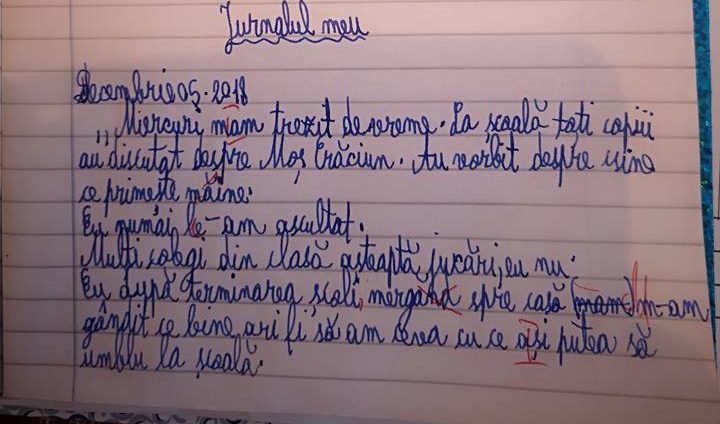 Jurnalul meu
Decembrie 05. 2018
„Miercuri mam trezit devreme. La școală toți copiii
au discutat despre Moș Crăciun. Au vorbit despre cine
ce primește mâine.
Eu numai le-am ascultat.
Mulți colegi din clasă așteaptă jukări, eu nu.
Eu după terminarea scoli, mergând spre casă (mam) m-am
gândit ce bine ari fi, să am ceva cu ce ași putea să
umblu la școală.